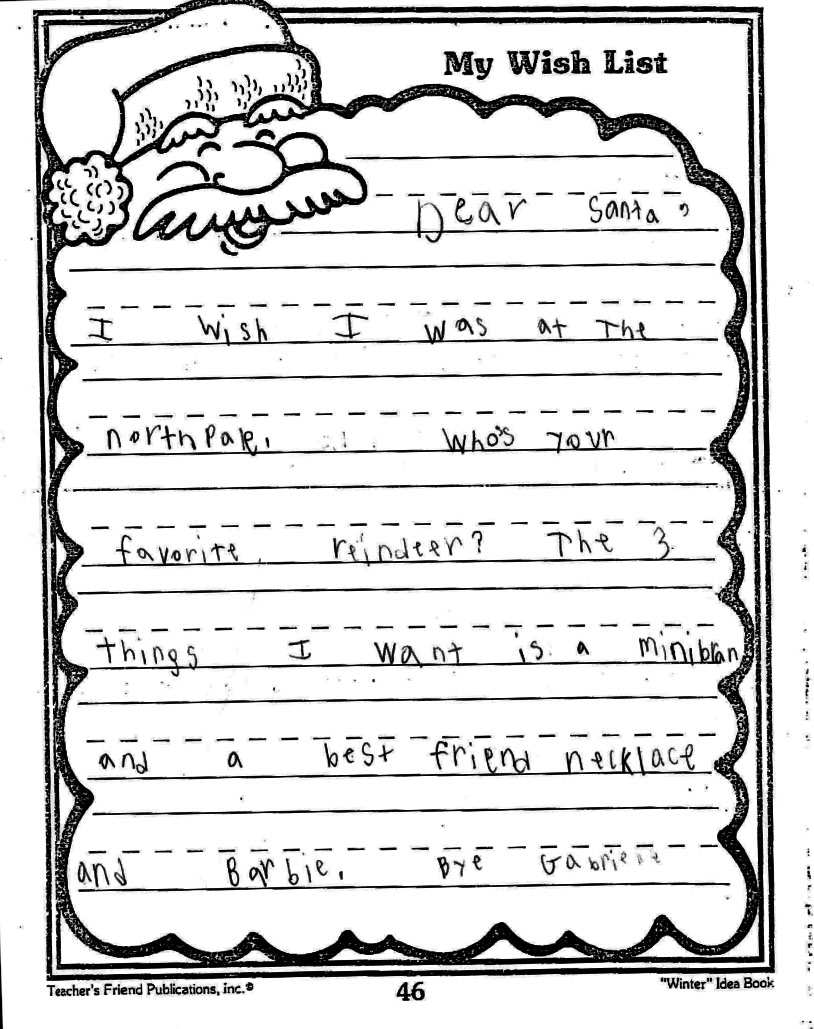 My Wish List
Dear Santa,
I wish I was at The
north Pale. Who's your
favorite reindeer? The 3
things I want is a minibran
and a best friend necklace
and Barbie. Bye
Teacher's Friend Publications, Inc.® 46 "Winter" Idea Book